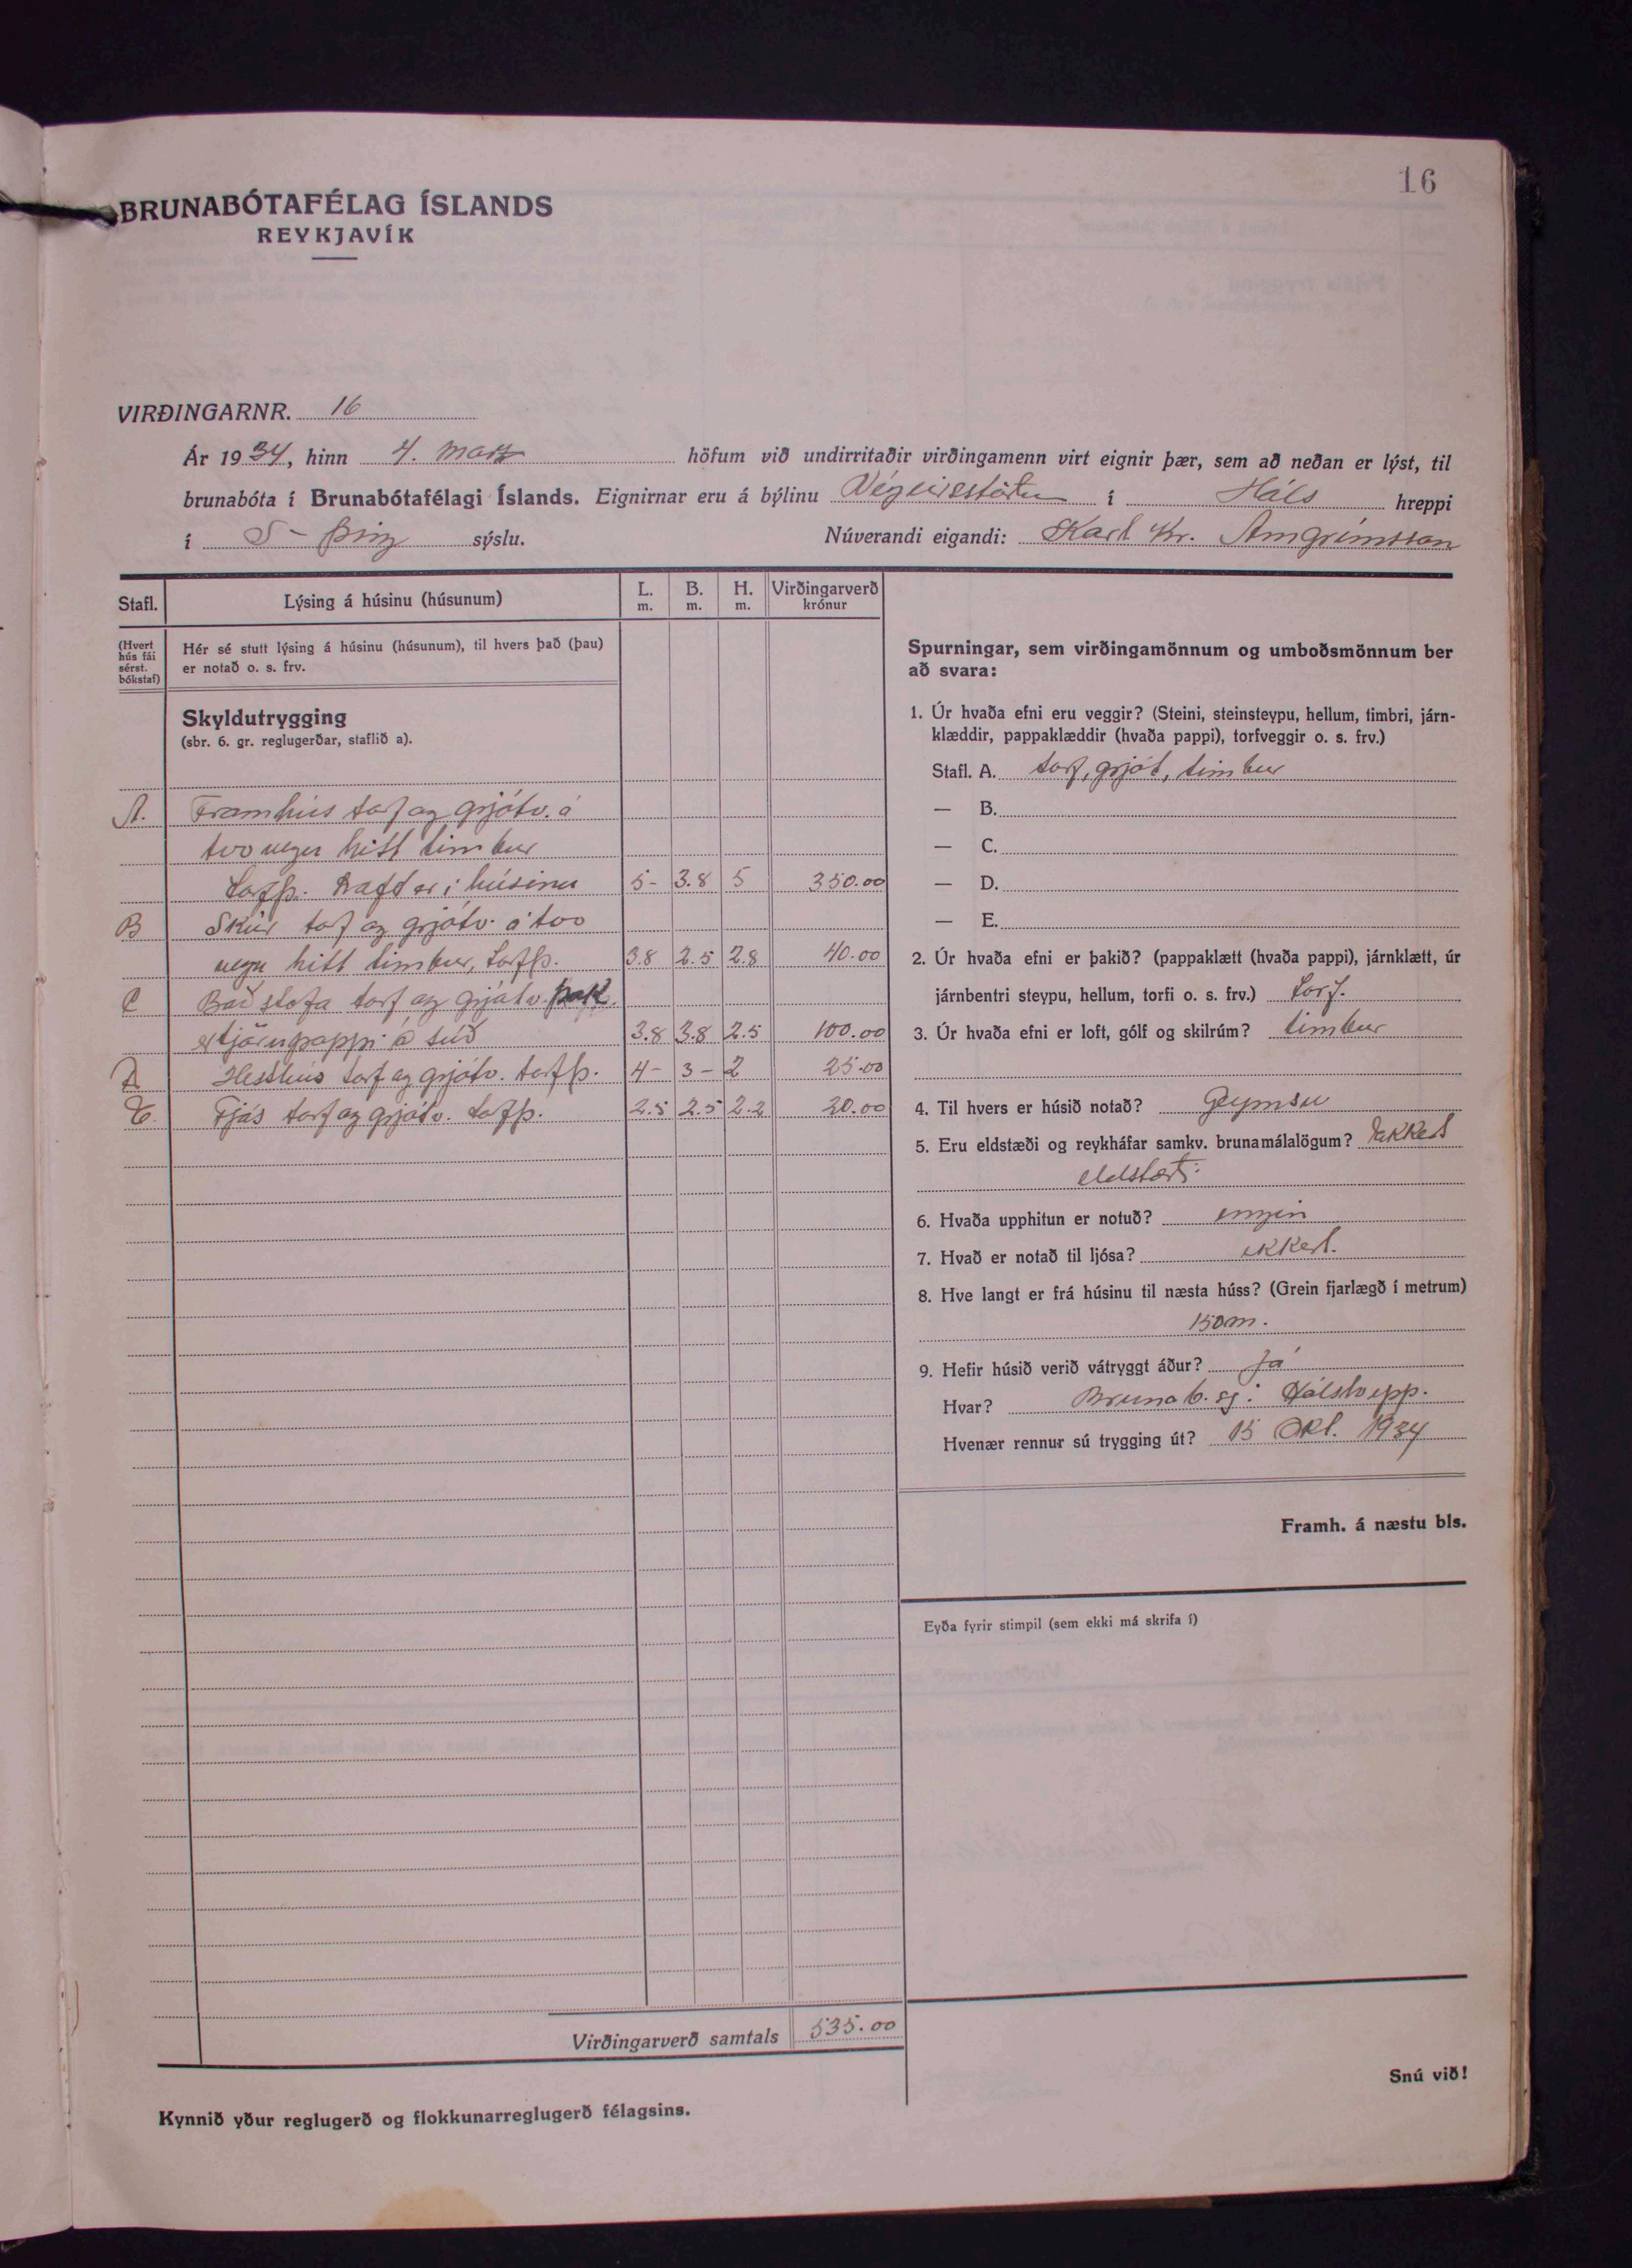 16
BRUNABÓTAFÉLAG ÍSLANDS
REYKJAVÍK
VIRÐINGARNR. 16
Ár 1934, hinn 4. marz höfum við undirritaðir virðingamenn virt eignir þær, sem að neðan er lýst, til
brunabóta í Brunabótafélagi Íslands. Eignirnar eru á býlinu Végeirsstöðum í Háls hreppi
í S-Þing sýslu. Núverandi eigandi: Karl Kr. Arngrímsson
Stafl. Lýsing á húsinu (húsunum) L. m. B. m. H. m. Virðingarverð krónur
(Hvert hús fái sérst. bókstaf)
Hér sé stutt lýsing á húsinu (húsunum), til hvers það (þau)
er notað o. s. frv.
Skyldutrygging
(sbr. 6. gr. reglugerðar, staflið a).
A. Framhús torf og grjótv. á
tvo vegu hitt timbur
torfþ. Kraft er í húsinu 5- 3.8 5 350.00
B Skúr torf og grjótv. á tvo
vegu hitt timbur, torfþ. 3.8 2.5 2.8 40.00
C Baðstofa torf og grjótv. þak
er tjörupappi á súð 3.8 3.8 2.5 100.00
D Hesthús torf og grjótv. torfþ. 4- 3- 2 25.00
E. Fjós torf og grjótv. torfþ. 2.5 2.5 2.2 20.00
Virðingarverð samtals 535.00
Kynnið yður reglugerð og flokkunarreglugerð félagsins.
Spurningar, sem virðingamönnum og umboðsmönnum ber
að svara:
1. Úr hvaða efni eru veggir? (Steini, steinsteypu, hellum, timbri, járn-
klæddir, pappaklæddir (hvaða pappi), torfveggir o. s. frv.)
Stafl. A. torf, grjót, timbur
— B.
— C.
— D.
— E.
2. Úr hvaða efni er þakið? (pappaklætt (hvaða pappi), járnklætt, úr
járnbentri steypu, hellum, torfi o. s. frv.) torf.
3. Úr hvaða efni er loft, gólf og skilrúm? timbur
4. Til hvers er húsið notað? Geymsu
5. Eru eldstæði og reykháfar samkv. brunamálalögum? ekkert
eldstæði
6. Hvaða upphitun er notuð? engin
7. Hvað er notað til ljósa? ekkert.
8. Hve langt er frá húsinu til næsta húss? (Grein fjarlægð í metrum)
150m.
9. Hefir húsið verið vátryggt áður? Já
Hvar? Brunab.sj. Hálshrepp.
Hvenær rennur sú trygging út? 15 Okt. 1934
Framh. á næstu bls.
Eyða fyrir stimpil (sem ekki má skrifa í)
Snú við!